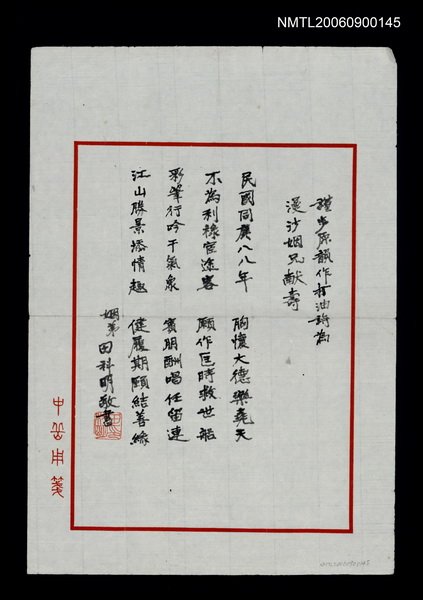 NMTL20060900145
謹步原韻作打油詩為
漫沙姻兄献壽
民國同庚八八年 胸懷大德樂堯天
不為利祿宦途客 願作匡時救世船
彩筆行吟干氣象 賓朋酬唱任留連
江山勝景添情趣 健履期頤結善緣
姻弟 田科明敬書
中岳用箋